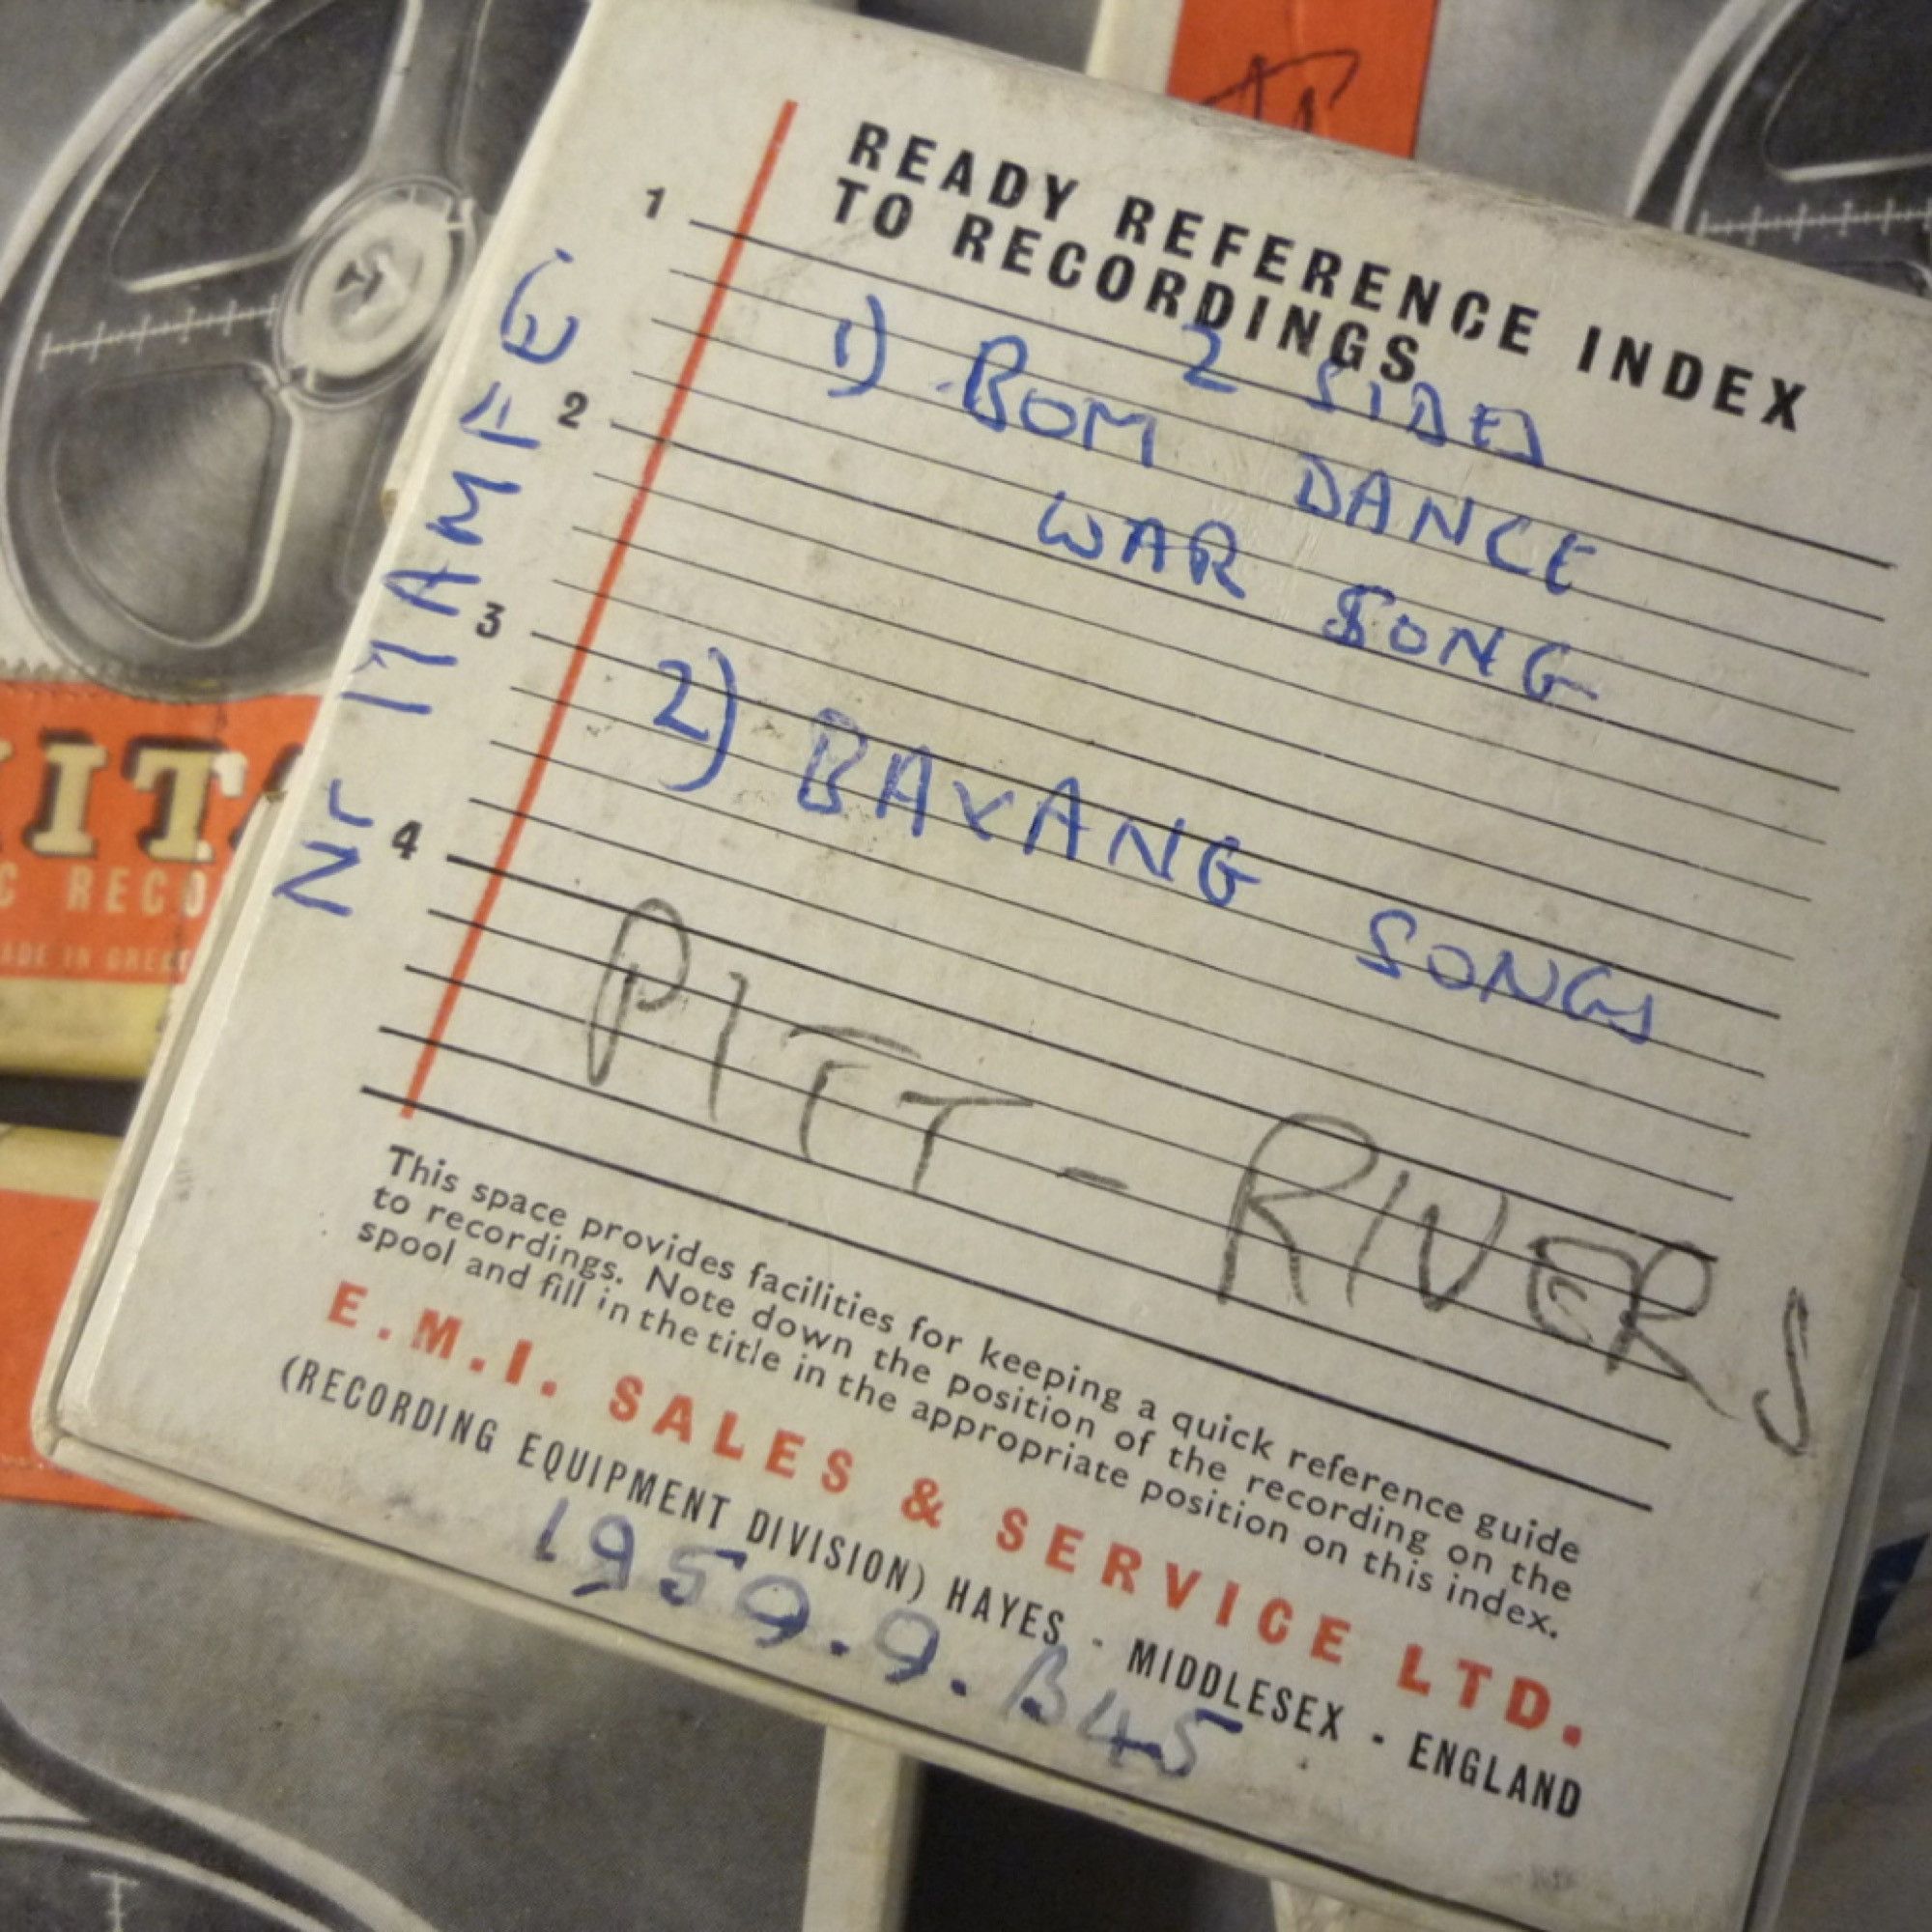 READY REFERENCE INDEX
TO RECORDINGS
2 SIDED
1) BOM DANCE
WAR SONG
2) BAYANG SONGS
PITT-RIVERS
1
2
3
4
Nr MAMFE
This space provides facilities for keeping a quick reference guide
to recordings. Note down the position of the recording on the
spool and fill in the title in the appropriate position on this index.
E.M.I. SALES & SERVICE LTD.
(RECORDING EQUIPMENT DIVISION) HAYES - MIDDLESEX - ENGLAND
1959.9.B45